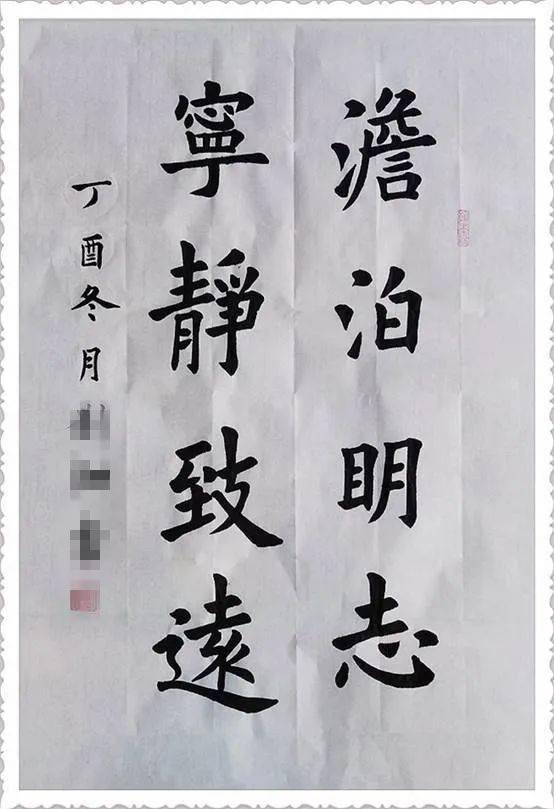 澹泊明志
寧靜致遠
丁酉冬月